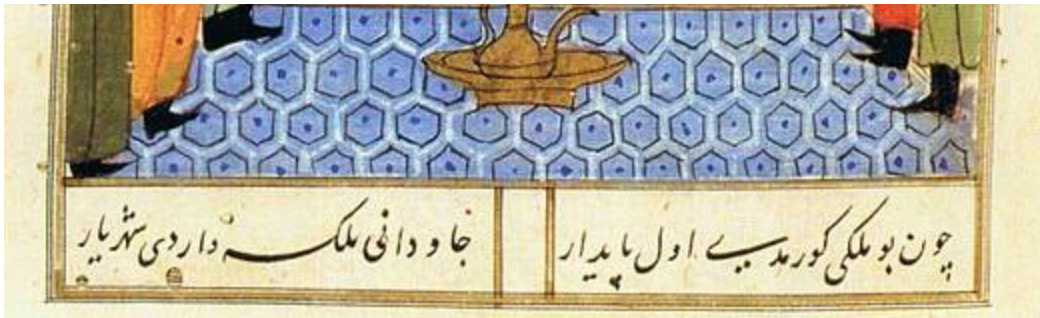 چون بو ملکی کورمدی اول پایدار
جاودانی ملکه واردی شهریار